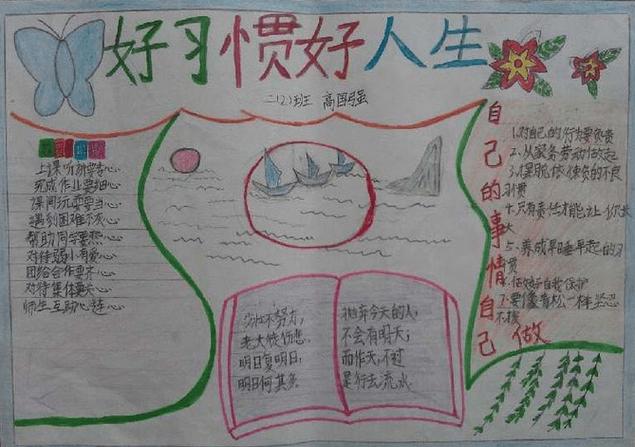 好习惯好人生
二(2)班 高国强
上课听讲要专心
完成作业要细心
课间玩耍要当心
遇到困难不灰心
帮助同学要热心
对待弱小有爱心
团结合作要齐心
对待集体要关心
师生互助心连心
少壮不努力,
老大徒伤悲
明日复明日,
明日何其多
抛弃今天的人,
不会有明天;
而昨天,不过
是行去流水
自己的事情自己做
1.对自己的行为要负责
2.从家务劳动做起
3.摆脱依赖的不良
习惯
4.只有责任才能让你长
大
5.养成早睡早起的习
惯
6.做好自我保护
7.要像青松一样坚忍
不拔